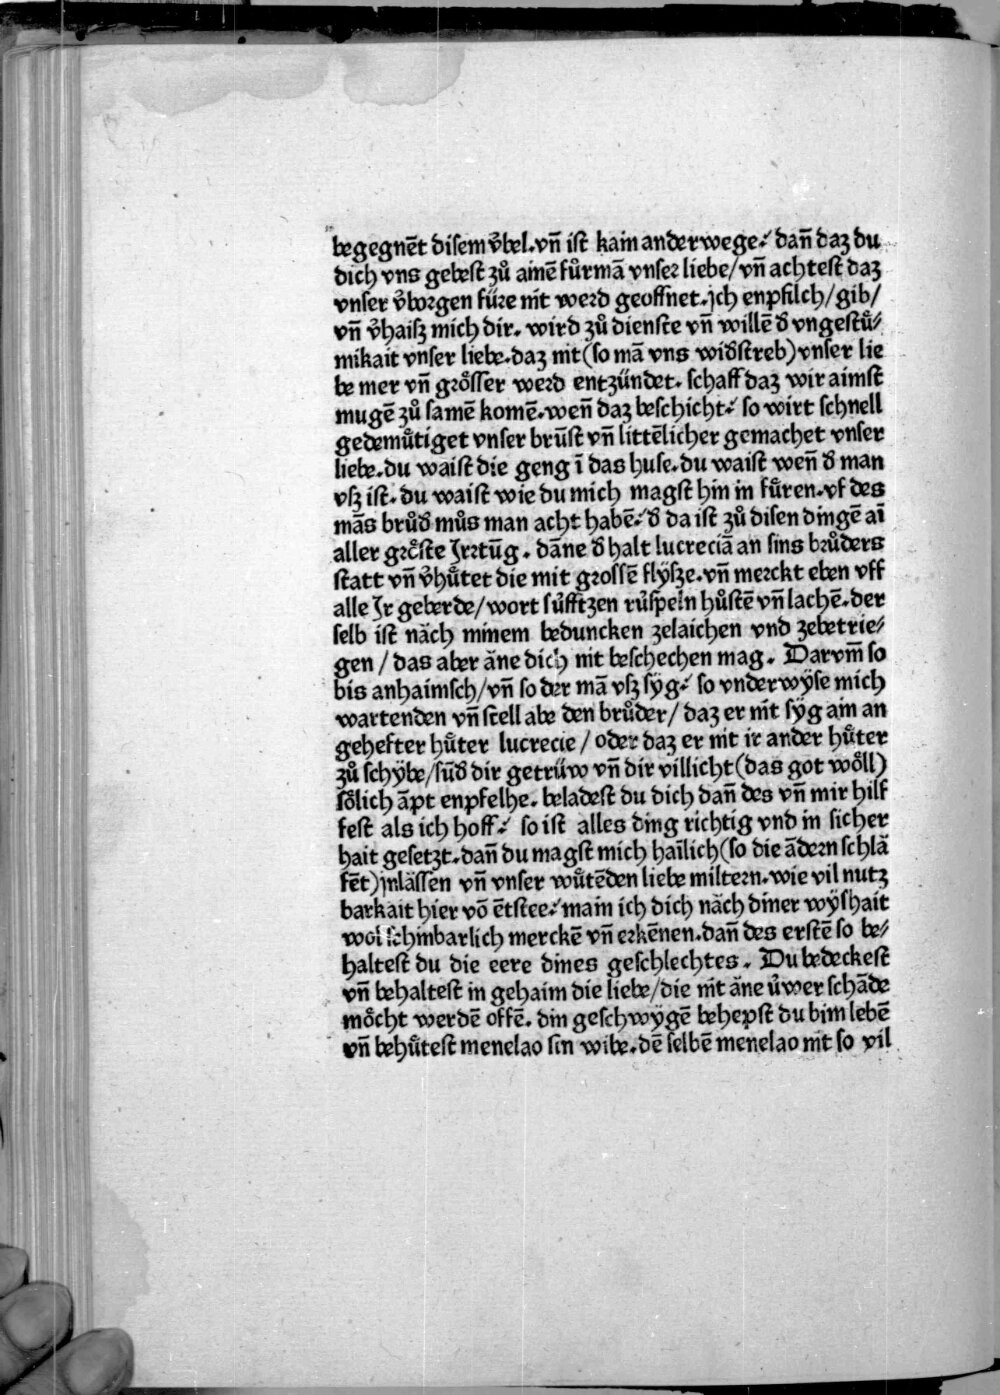 begegnēt disem v̄bel.vn̄ ist kain anderwege.⸗ dan̄ daz du
dich vns gebest zů ainē fůrmā vnser liebe/vn̄ achtest daz
vnser v̄borgen füre nit werd geoffnet.jch enpfilch/gib/
vn̄ v̄haisz mich dir. wird zů dienste vn̄ willē đ vngestů⸗
mikait vnser liebe.daz nit(so mā vns widstreb)vnser lie
be mer vn̄ grösser werd entzündet. schaff daz wir aimst
mugē zů samē komē.wen̄ daz beschicht.⸗ so wirt schnell
gedemůtiget vnser brūst vn̄ littēlicher gemachet vnser
liebe.du waist die geng ī das huse.du waist wen̄ đ man
vsz ist. du waist wie du mich magst hin in fůren.vf des
mās brůđ můs man acht habē.⸗đ da ist zů disen dingē aī
aller gröste Jrrtūg. dāne đ halt lucreciā an sins brůders
statt vn̄ v̄hůtet die mit grossē flyſze.vn̄ merckt eben vff
alle Jr geberde/wort sůfftzen růſpeln hůstē vn̄ lachē.der
selb ist näch minem beduncken zelaichen vnd zebetrie⸗
gen/das aber äne dich nit beschechen mag. Darvm̄ so
bis anhaimsch/vn̄ so der mā vsz syg.⸗ so vnderwyse mich
wartenden vn̄ stell abe den brůder/daz er nit syg ain an
gehefter hůter lucrecie/oder daz er nit ir ander hůter
zů schybe/sūđ dir getrüw vn̄ dir villicht(das got wöll)
sölich āpt enpfelhe. beladest du dich dan̄ des vn̄ mir hilf
fest als ich hoff.⸗ so ist alles ding richtig vnd in sicher
hait gesetzt.dan̄ du magst mich haīlich(so die ādern schlä
fēt)jnlässen vn̄ vnser wůtēden liebe miltern.wie vil nutz
barkait hier vō ētstee.⸗main ich dich näch diner wyshait
wol schinbarlich merckē vn̄ erkēnen.dan̄ des erstē so be⸗
haltest du die eere dines geschlechtes. Du bedeckest
vn̄ behaltest in gehaim die liebe/die nit äne ůwer schāde
möcht werdē offē. din geschwygē behepst du bim lebē
vn̄ behůtest menelao sin wibe.dē selbē menelao nit so vil